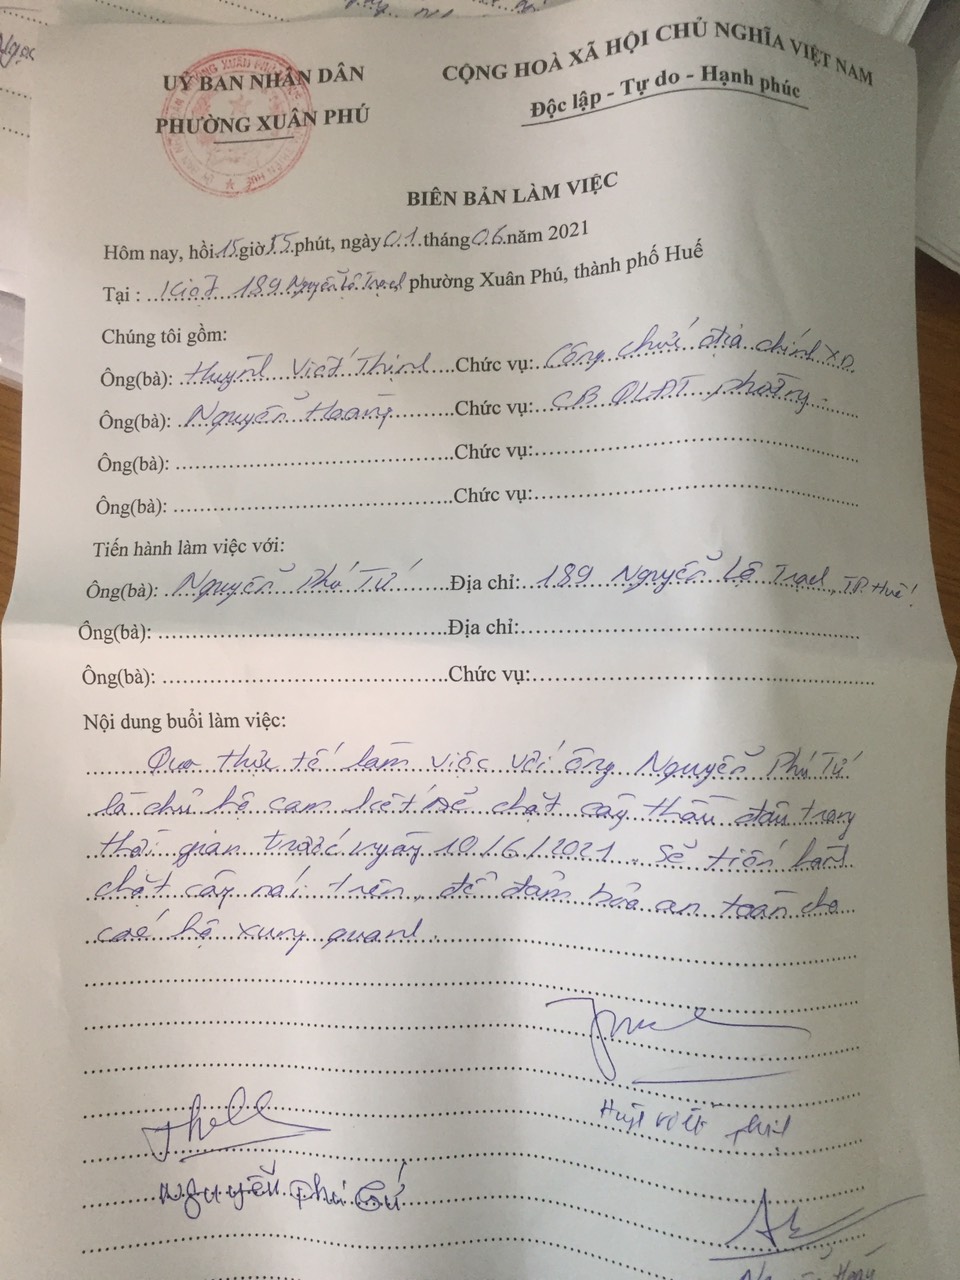 UỶ BAN NHÂN DÂN
PHƯỜNG XUÂN PHÚ
CỘNG HOÀ XÃ HỘI CHỦ NGHĨA VIỆT NAM
Độc lập - Tự do - Hạnh phúc
BIÊN BẢN LÀM VIỆC
Hôm nay, hồi 15 giờ 15 phút, ngày 01 tháng 06 năm 2021
Tại : Kiot 189 Nguyễn Lộ Trạch phường Xuân Phú, thành phố Huế
Chúng tôi gồm:
Ông(bà): Huỳnh Viết Thịnh Chức vụ: Công chức địa chính XD
Ông(bà): Nguyễn Hoàng Chức vụ: CB QLĐT phường
Ông(bà): Chức vụ:
Ông(bà): Chức vụ:
Tiến hành làm việc với:
Ông(bà): Nguyễn Phú Tứ Địa chỉ: 189 Nguyễn Lộ Trạch, TP. Huế
Ông(bà): Địa chỉ:
Ông(bà): Chức vụ:
Nội dung buổi làm việc:
Qua thực tế làm việc với ông Nguyễn Phú Tứ
là chủ hộ cam kết sẽ chặt cây thầu đâu trong
thời gian trước ngày 10/6/2021. Sẽ tiến hành
chặt cây nói trên, để đảm bảo an toàn cho
các hộ xung quanh.
Nguyễn Phú Tứ